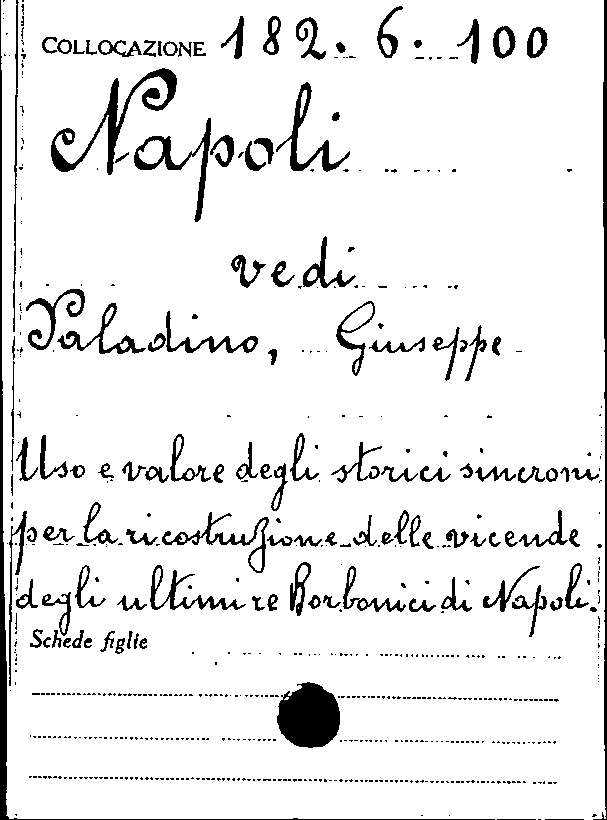 COLLOCAZIONE 182. 6. 100
Napoli
vedi
Paladino, Giuseppe
Uso e valore degli storici sincroni
per la ricostruzione delle vicende
degli ultimi re Borbonici di Napoli.
Schede figlie